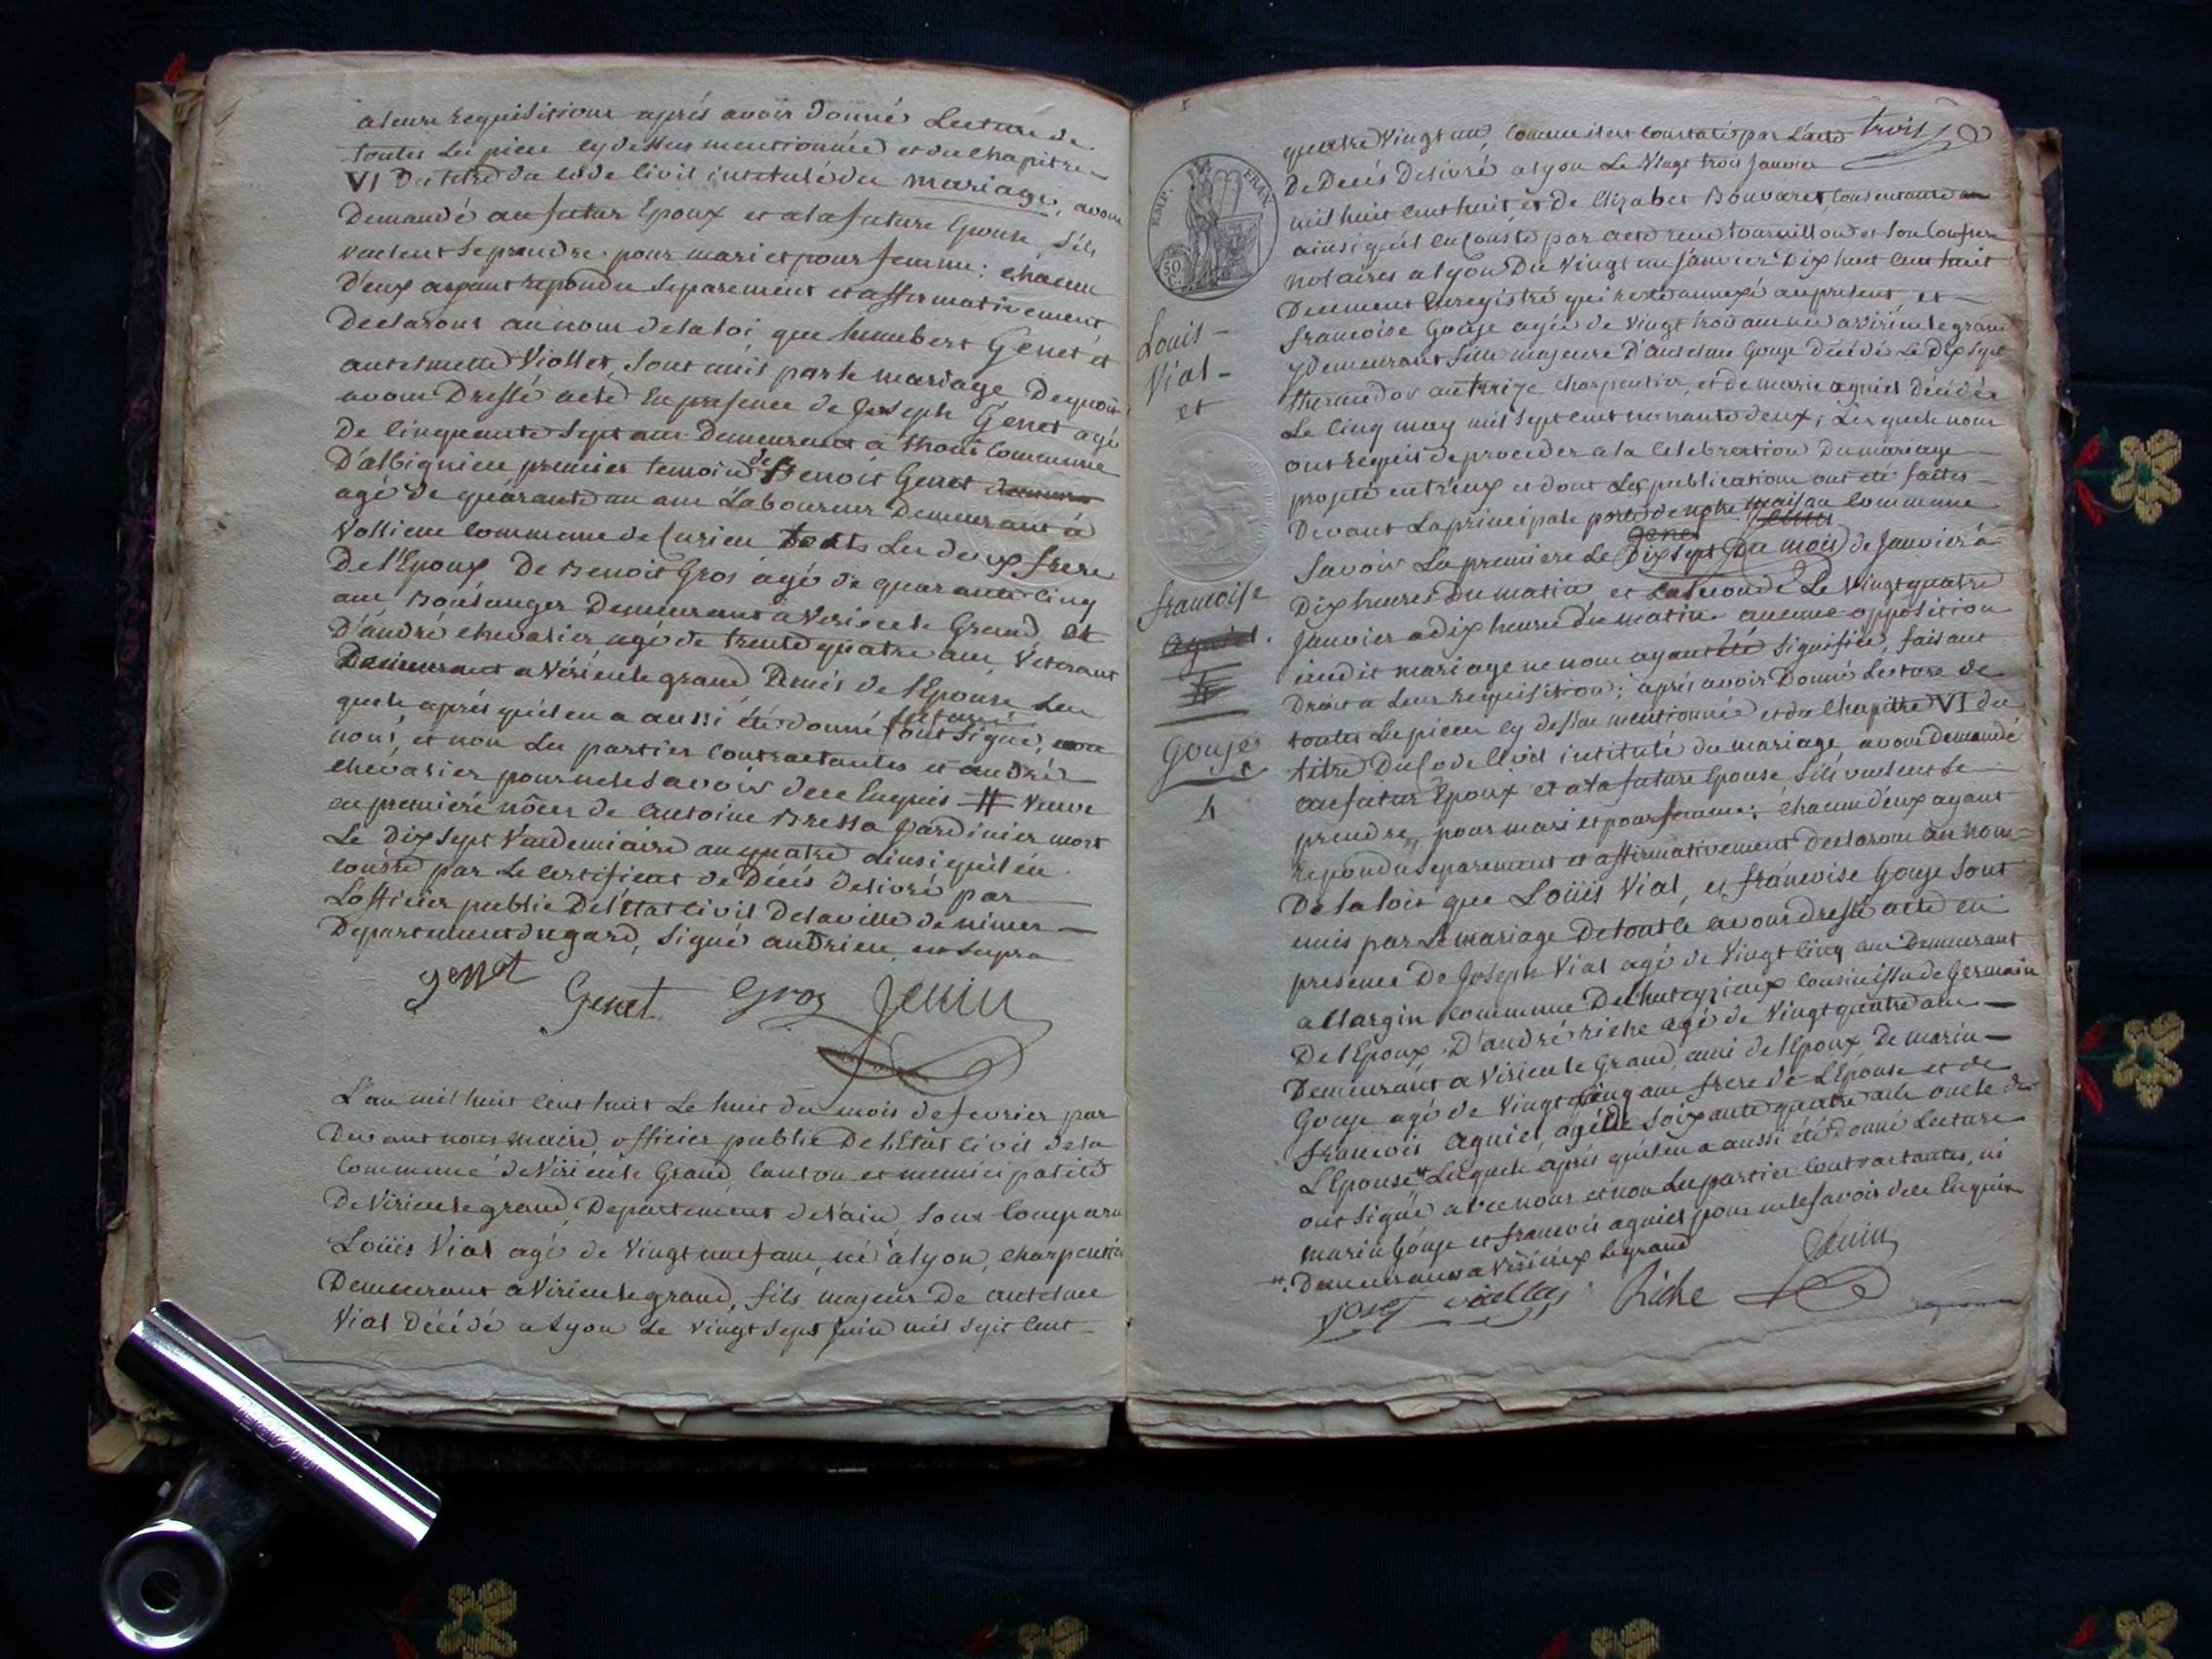 a leurs requisitions aprés avoir donné Lecture de
toutes Les pieces cy dessus mentionnées et du Chapitre
VI Du titre du code Civil intitulé du mariage, avons
Demandé au futur Epoux et a la future Epouse s'ils
veulent se prendre pour mari et pour femme: chacun
D'eux ayant repondu separement et affirmativement
Declarons au nom de la loi que humbert Genet et
antelmette Viollet, sont unis par le mariage De quoi
avons Dressé acte En presence de Joseph Genet agé
De Cinquante sept ans Demeurant a thoüi Commune
D'albignieu premier temoin de Benoit Genet
agé de quarante un ans Laboureur Demeurant á
Vollieu Commune de Curieu Les deux frere
De l'Epoux De Benoit Gros agé de quarante cinq
ans Boulanger Demeurant a Virieu le Grand et
D'andré chevalier agé de trente quatre ans Veterant
Demeurant a Virieu le grand Amis de l'Epouse Les
quels aprés qu'il en a aussi été donné lecture ont signé, avec
nous, et non Les parties Contractantes et andré
chevalier pour ne le savoir de ce Enquis # Veuve
en premiere nôces de antoine Bressa Jardinier mort
Le Dix sept Vandemiaire an quatre ainsi qu'il en
conste par Le Certificat de Décés delivré par
L'officier public De l'état Civil de la ville de nimes
Departement du gard, signé andrieu, ut supra
genet Genet Gros Jenin
L'an mil huit Cent huit Le huit du mois de fevrier par
Devant nous maire officier public De l'Etat Civil de la
Commune de Virieu le Grand Canton et municipalité
De Virieu le grand, Departement de l'ain, sont Comparu
Loüis Vial agé de Vingt neuf ans, né a lyon, charpentier
Demeurant a Virieu le grand, fils majeur De antelme
Vial Décédé a Lyon Le Vingt sept Juin mil sept Cent
trois
EMP. FRAN.
50 C.
quatre Vingt un, Comme il est Constaté par L'acte
De Decés Delivré a lyon Le Vingt trois Janvier
mil huit Cent huit, et De Elizabet Bouvaret, Consentante
ainsi qu'il en Conste par acte reçu tournillon et son Confrere
notaires a lyon Du Vingt un Janvier Dix huit Cent huit
Deument Enregistré qui reste annexé au present, et
francoise Gouje agée de Vingt trois ans née a Virieu le grand
y demeurant fille majeure D'antelme Gouje Décédé Le Dix sept
thermidor an treize charpentier, et de marie agniel Décédée
Le Cinq may mil sept cent nonante deux; Les quels nous
ont Requis de proceder a la Celebration Du mariage
projeté entr'eux et dont Les publications ont été faites
Devant La principale porte de notre maison Commune
Genet Jenin
Savoir La premiere Le Dix sept Du mois de Janvier á
Dix heures Du matin et La seconde Le Vingt quatre
Janvier a dix heures du matin aucune opposition
audit mariage ne nous ayant été signifiée, faisant
Droit a Leur requisition; aprés avoir Donné Lecture de
toutes Les pieces cy dessus mentionnées et du Chapitre VI du
titre Du Code Civil intitulé du mariage avons demandé
au futur Epoux et a la future Epouse s'ils veulent se
prendre pour mari et pour femme; chacun d'eux ayant
repondu separement et affirmativement Declarons au nom
De la loi que Loüis Vial, et francoise Gouje sont
unis par Le mariage De tout ce avons dressé acte en
presence De Joseph Vial agé de Vingt Cinq ans Demeurant
Commune De Cousin issu de Germain
De l'Epoux D'andré riche agé de Vingt quatre ans
Demeurant a Virieu le Grand, ami de l'Epoux De marin
Gouje agé de Vingt Cinq ans frere de L'Epouse et de
francois agniel, agé De soixante quatre ans oncle de
L'Epouse Lesquels aprés qu'il en a aussi été donné Lecture
ont signé avec nous et non Les parties Contractantes, ni
marin Gouje et francois agniel pour ne le savoir de ce Enquis
Demeurant a Virieux Legrand
Riche Jenin
Louis
Vial
et
francoise
agniel
Gouje
4